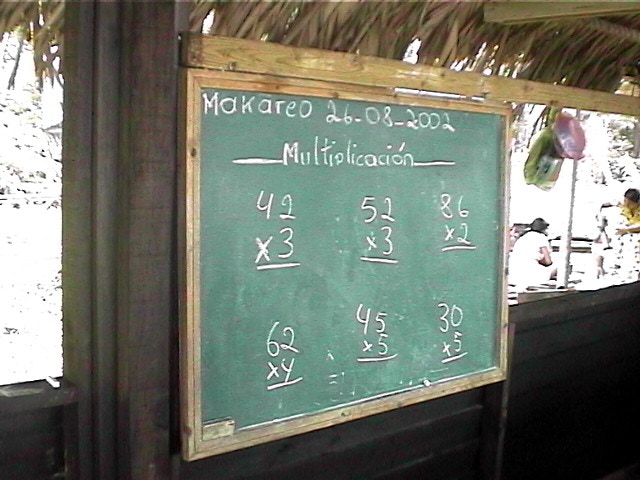 Makareo 26-08-2002
Multiplicación
42 52 86
x3 x3 x2
62 45 30
x4 x5 x5